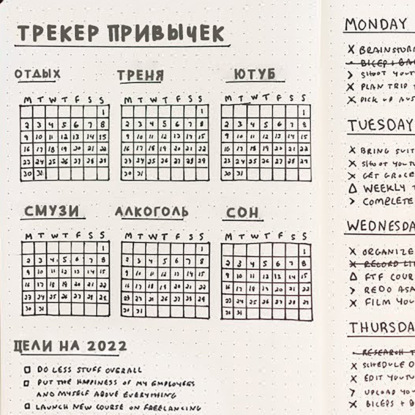 ТРЕКЕР ПРИВЫЧЕК
ОТДЫХ
M T W T F S S
1
2 3 4 5 6 7 8
9 10 11 12 13 14 15
16 17 18 19 20 21 22
23 24 25 26 27 28 29
30 31
ТРЕНЯ
M T W T F S S
1
2 3 4 5 6 7 8
9 10 11 12 13 14 15
16 17 18 19 20 21 22
23 24 25 26 27 28 29
30 31
ЮТУБ
M T W T F S S
1
2 3 4 5 6 7 8
9 10 11 12 13 14 15
16 17 18 19 20 21 22
23 24 25 26 27 28 29
30 31
СМУЗИ
M T W T F S S
1
2 3 4 5 6 7 8
9 10 11 12 13 14 15
16 17 18 19 20 21 22
23 24 25 26 27 28 29
30 31
АЛКОГОЛЬ
M T W T F S S
1
2 3 4 5 6 7 8
9 10 11 12 13 14 15
16 17 18 19 20 21 22
23 24 25 26 27 28 29
30 31
СОН
M T W T F S S
1
2 3 4 5 6 7 8
9 10 11 12 13 14 15
16 17 18 19 20 21 22
23 24 25 26 27 28 29
30 31
ЦЕЛИ НА 2022
DO LESS STUFF OVERALL
PUT THE HAPPINESS OF MY EMPLOYEES
AND MYSELF ABOVE EVERYTHING
LAUNCH NEW COURSE ON FREELANCING
MONDAY
X BRAINSTOR
X BICEP + BA
> SHOOT YOUT
X PLAN TRIP
X PICK UP
TUESDAY
X BRING SUIT
X SHOOT YOUT
X GET GROCE
Δ WEEKLY
> COMPLETE
WEDNESDA
X ORGANIZE
X RECORD
Δ FTF COUR
> REDO ASA
X FILM YOU
THURSDA
RESEARCH
X SCHEDULE
X EDIT YOUT
> UPLOAD
X BICEPS +